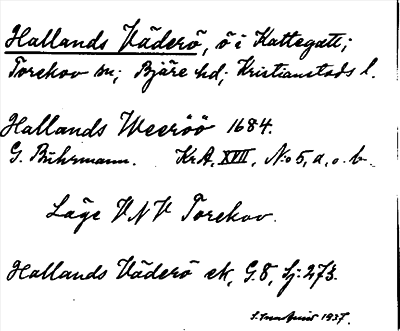 Hallands Väderö, ö i Kattegatt;
Torekov sn; Bjäre hd; Kristianstads l.
Hallands Weeröö 1684.
G. Buhrmann. KrA, XVII, N:o 5, a, o. b.
Läge VNV Torekov.
Hallands Väderö ek, G.8, Sj: 273.
1937.